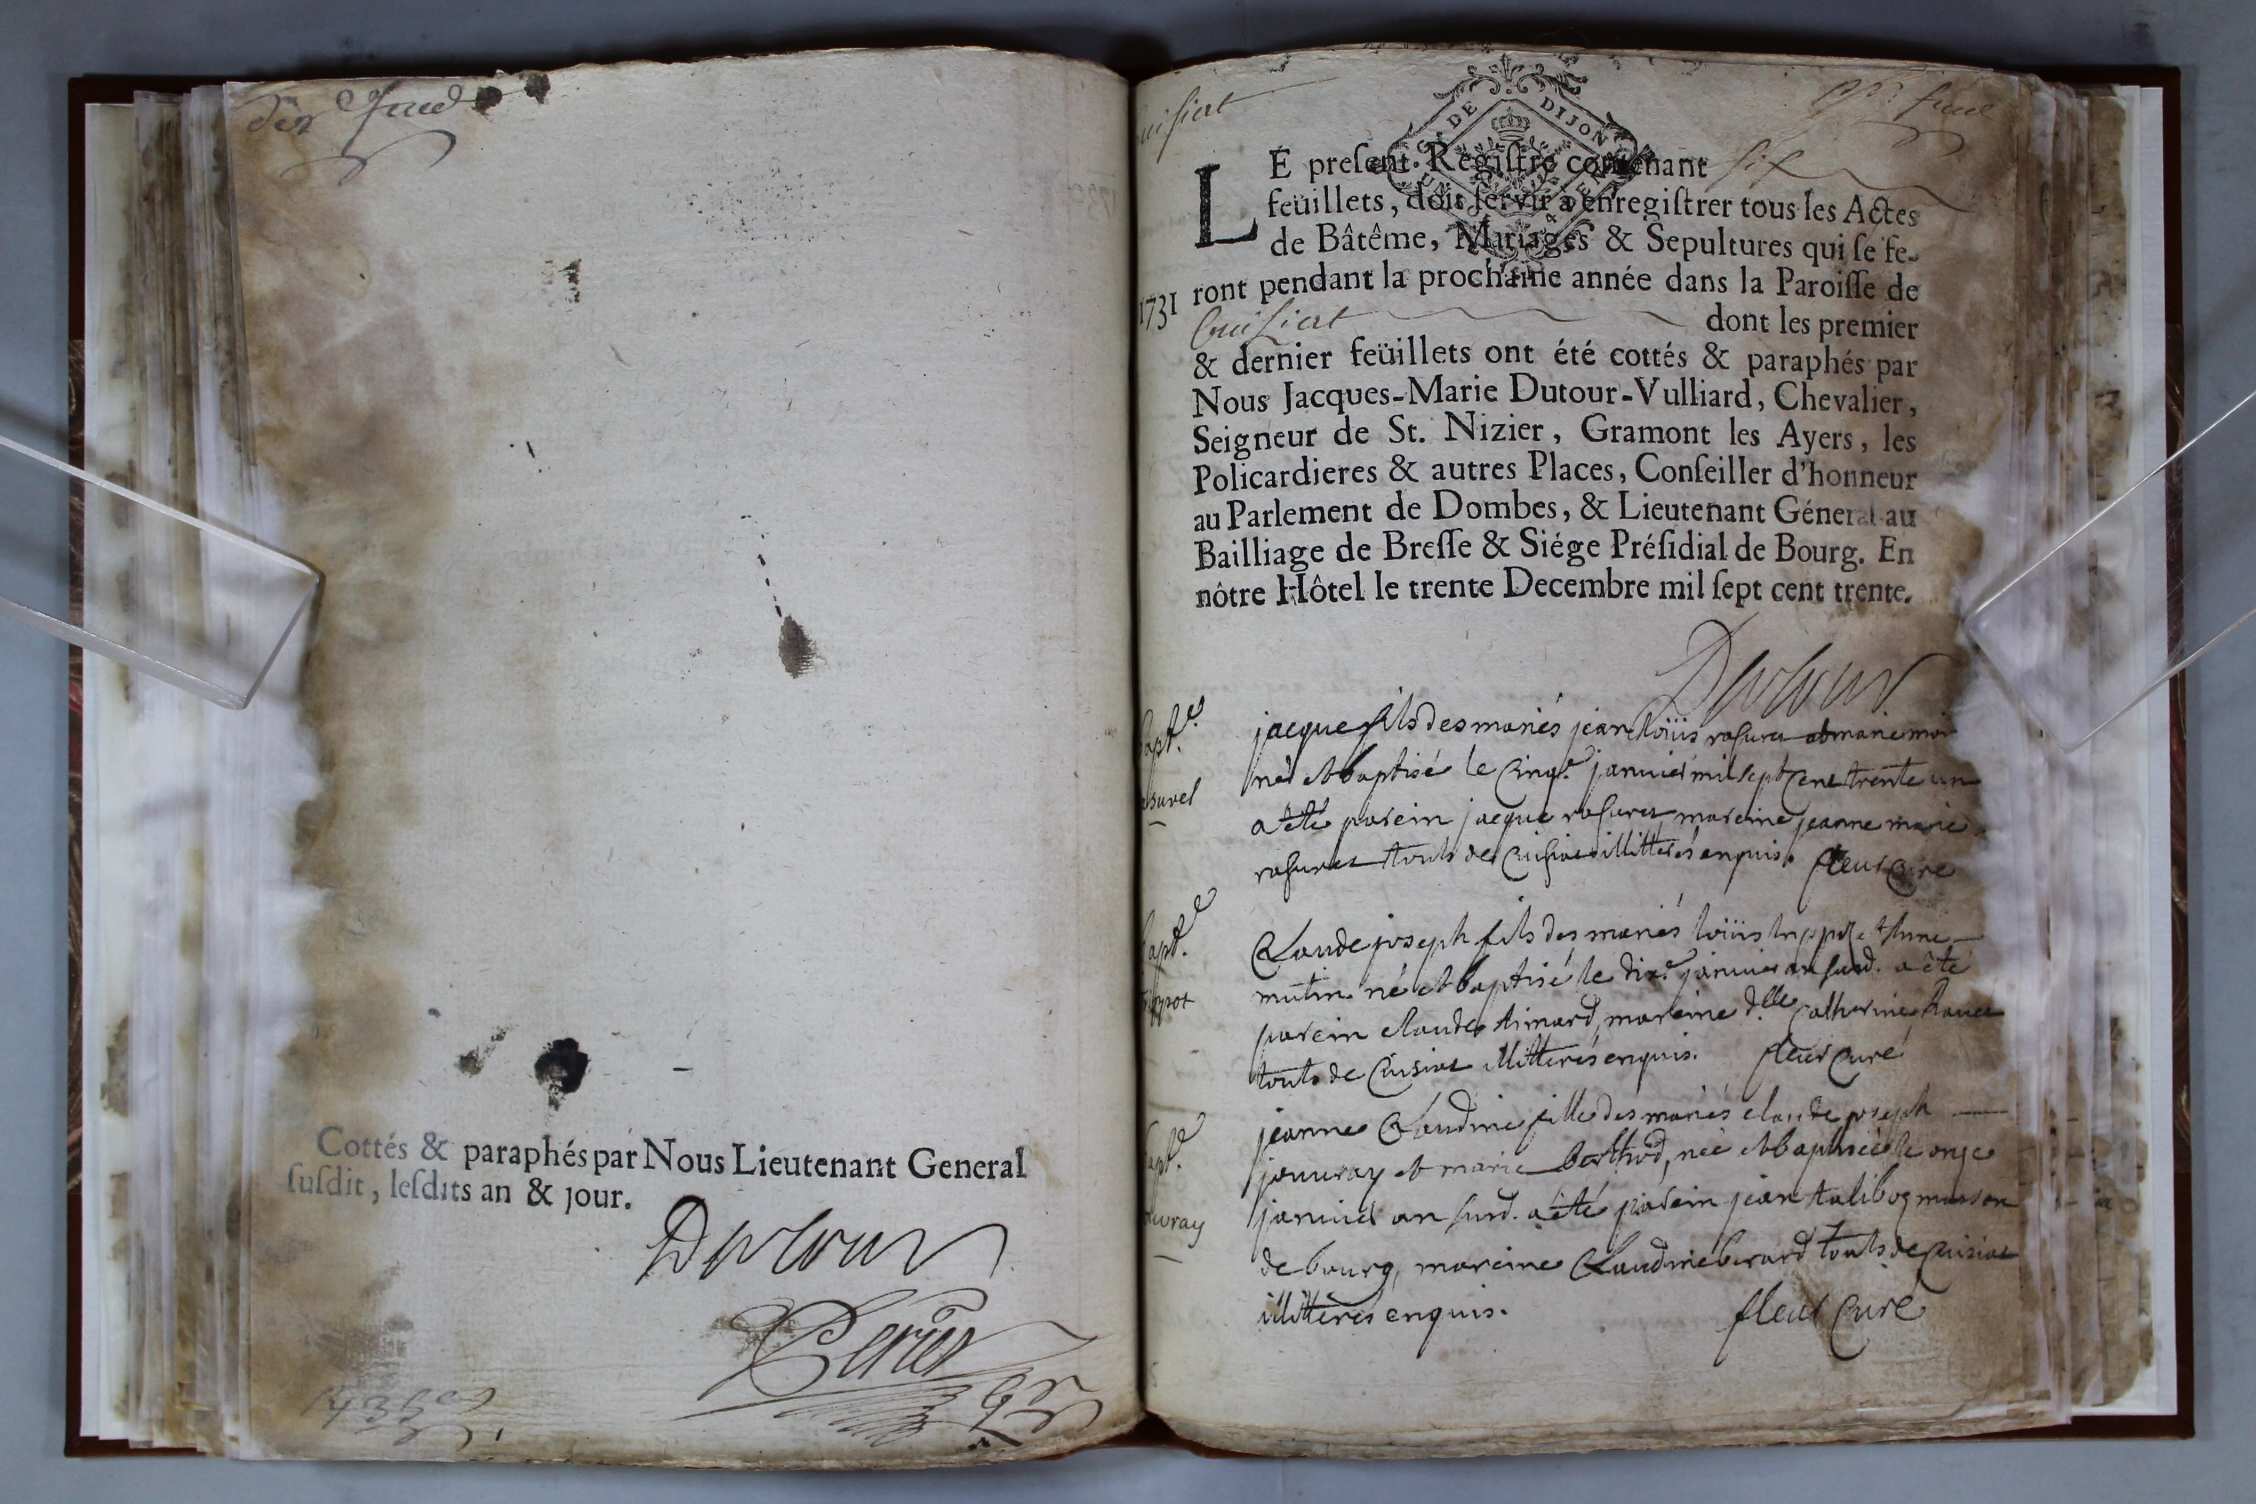 der feuil
Cottés & paraphés par Nous Lieutenant General
ſuſdit, leſdits an & jour.
Dutour
Perier
Cuisiat
1er feuil
DE DIJON
LE preſent Regiſtre contenant six
feüillets, doit ſervir à enregiſtrer tous les Actes
de Bâtême, Mariages & Sepultures qui ſe fe-
ront pendant la prochaine année dans la Paroiſſe de
1731
Cuiſiat dont les premier
& dernier feüillets ont été cottés & paraphés par
Nous Jacques-Marie Dutour-Vulliard, Chevalier,
Seigneur de St. Nizier, Gramont les Ayers, les
Policardieres & autres Places, Conſeiller d'honneur
au Parlement de Dombes, & Lieutenant Général au
Bailliage de Breſſe & Siége Préſidial de Bourg. En
nôtre Hôtel le trente Decembre mil ſept cent trente.
Dutour
bapt.e
jacque fils des mariés jean loüis rasurel et marie
né et baptisé le cinq.e janvier mil sept cent trente un
a été parein jacque rasurel mareine jeanne marie
rasurel touts de cuisiat illitterés enquis. fleur curé
bapt.e
Claude joseph fils des mariés loüis trippoz et Anne
mutin né et baptisé le dix.e janvier an susd. a été
parein claude Aimard, mareine d.lle catherine
touts de Cuisiat illitterés enquis. fleur curé
bapt.e
jouvray
jeanne Claudine fille des mariés claude joseph
jouvray et marie berthod, née et baptisée le onze
janvier an susd. a été parein jean masson
de bourg, mareine Claudine berard touts de Cuisiat
illitterés enquis.
fleur Curé